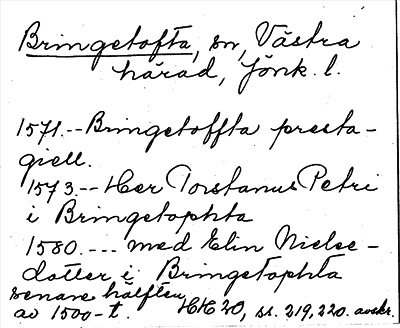 Bringetofta, sn, Västra
härad, Jönk. l.
1571.-- Bringetoffta presta-
giell.
1573.-- Her Torstanus Petri
i Bringetophta
1580.--- med Elin Nielse-
dotter i Bringetophta
senare hälften
av 1500-t. HH 20, ss. 219, 220. avskr.